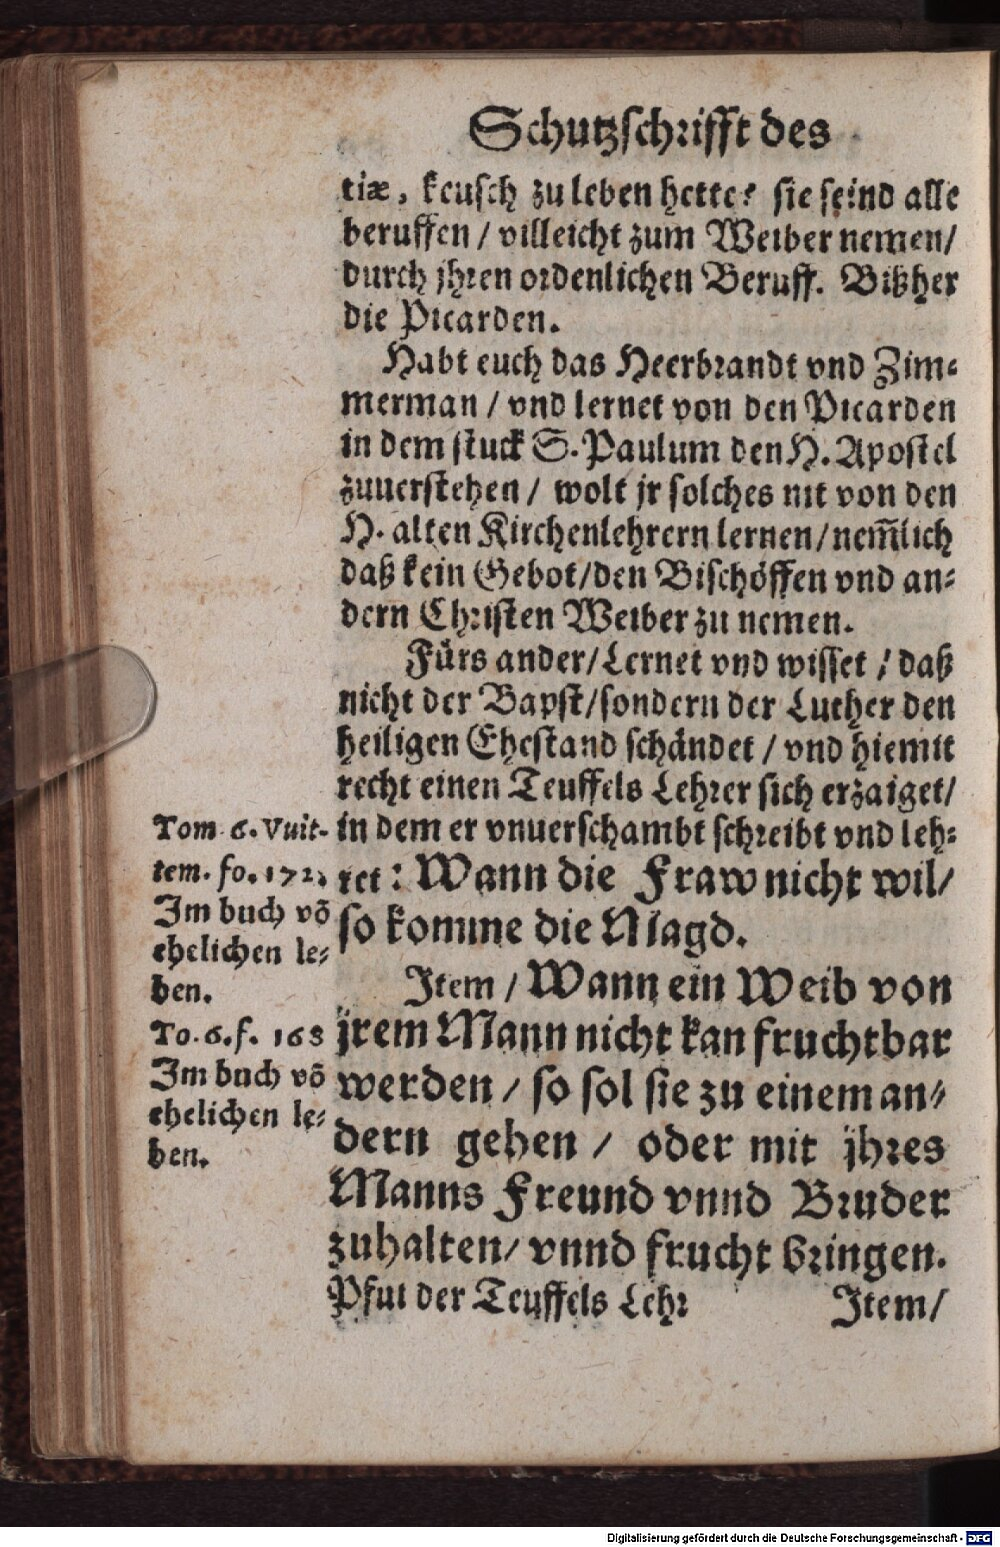 Schutzschrifft des
tiæ, keusch zu leben hette? sie seind alle
beruffen / villeicht zum Weiber nemen/
durch jhren ordenlichen Beruff. Bißher
die Picarden.
Habt euch das Heerbrandt vnd Zim-
merman / vnd lernet von den Picarden
in dem stuck S. Paulum den H. Apostel
zuuerstehen / wolt jr solches nit von den
H. alten Kirchenlehrern lernen / nem̃lich
daß kein Gebot/den Bischöffen vnd an-
dern Christen Weiber zu nemen.
Fürs ander/Lernet vnd wisset / daß
nicht der Bapst/sondern der Luther den
heiligen Ehestand schändet / vnd hiemit
recht einen Teuffels Lehrer sich erzaiget/
in dem er vnuerschambt schreibt vnd leh-
ret: Wann die Fraw nicht wil/
so komme die Magd.
Item / Wann ein Weib von
jrem Mann nicht kan fruchtbar
werden / so sol sie zu einem an-
dern gehen / oder mit jhres
Manns Freund vnnd Bruder
zuhalten/ vnnd frucht bringen.
Pfui der Teuffels Lehr
Item/
Tom. 6. Vuit-
tem. fo. 172.
Im buch võ
ehelichen le-
ben.
To. 6. f. 168
Im buch võ
ehelichen le-
ben.
Digitalisierung gefördert durch die Deutsche Forschungsgemeinschaft - DFG